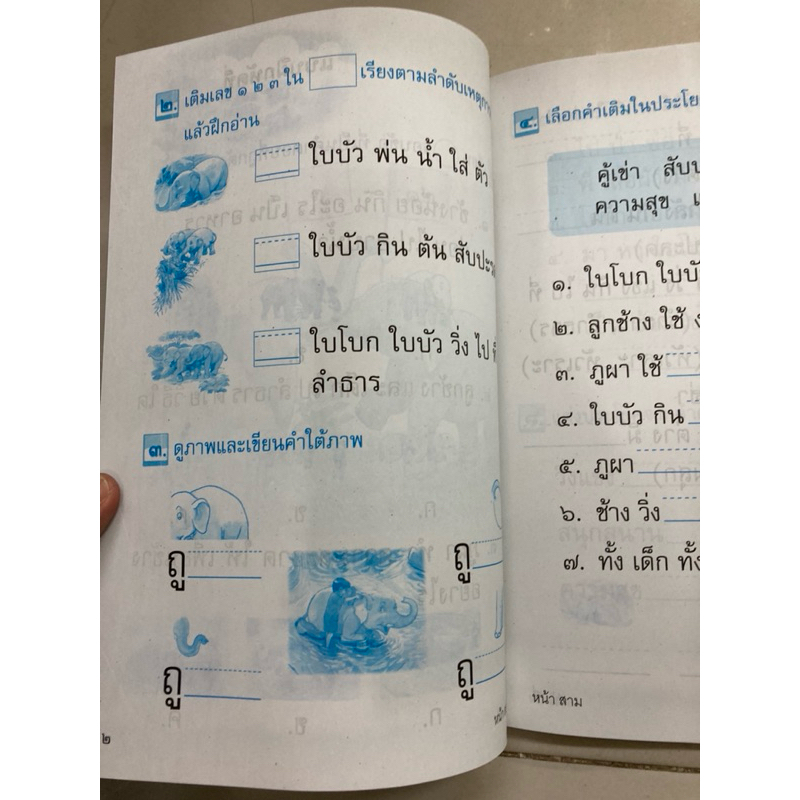 ๒. เติมเลข ๑ ๒ ๓ ใน เรียงตามลำดับ
แล้วฝึกอ่าน
ใบบัว พ่น น้ำ ใส่ ตัว
ใบบัว กิน ต้น
ใบโบก ใบบัว วิ่ง ไป
ลำธาร
๓. ดูภาพและเขียนคำใต้ภาพ
ถู
ถู
ถู
ถู
๒
๔. เลือกคำเติมในประโย
คู้เข่า
ความสุข
๑. ใบโบก
๒. ลูกช้าง ใช้
๓. ภูผา ใช้
๔. ใบบัว กิน
๕. ภูผา
๖. ช้าง วิ่ง
๗. ทั้ง เด็ก ทั้ง
หน้า สาม